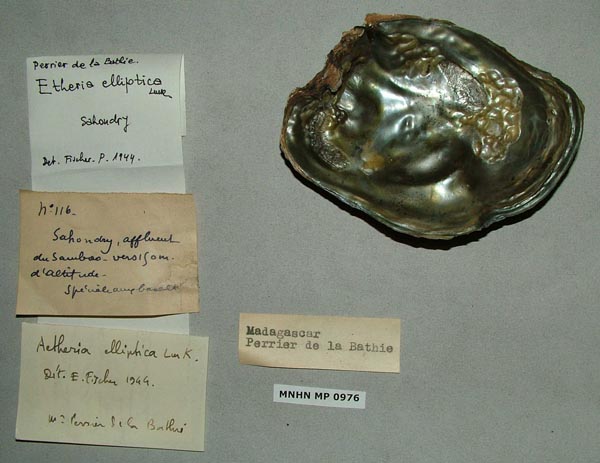 Perrier de la Bathie.
Etheria elliptica
Lmk
Sahondry
Det. Fischer. P. 1944.
No 116-
Sahondry, affluent
du Sambao- vers 150m.
d'altitude-
Aetheria elliptica LmK.
Dét. E. Fischer 1944.
Mr Perrier de la Bathie
Madagascar
Perrier de la Bathie
MNHN MP 0976